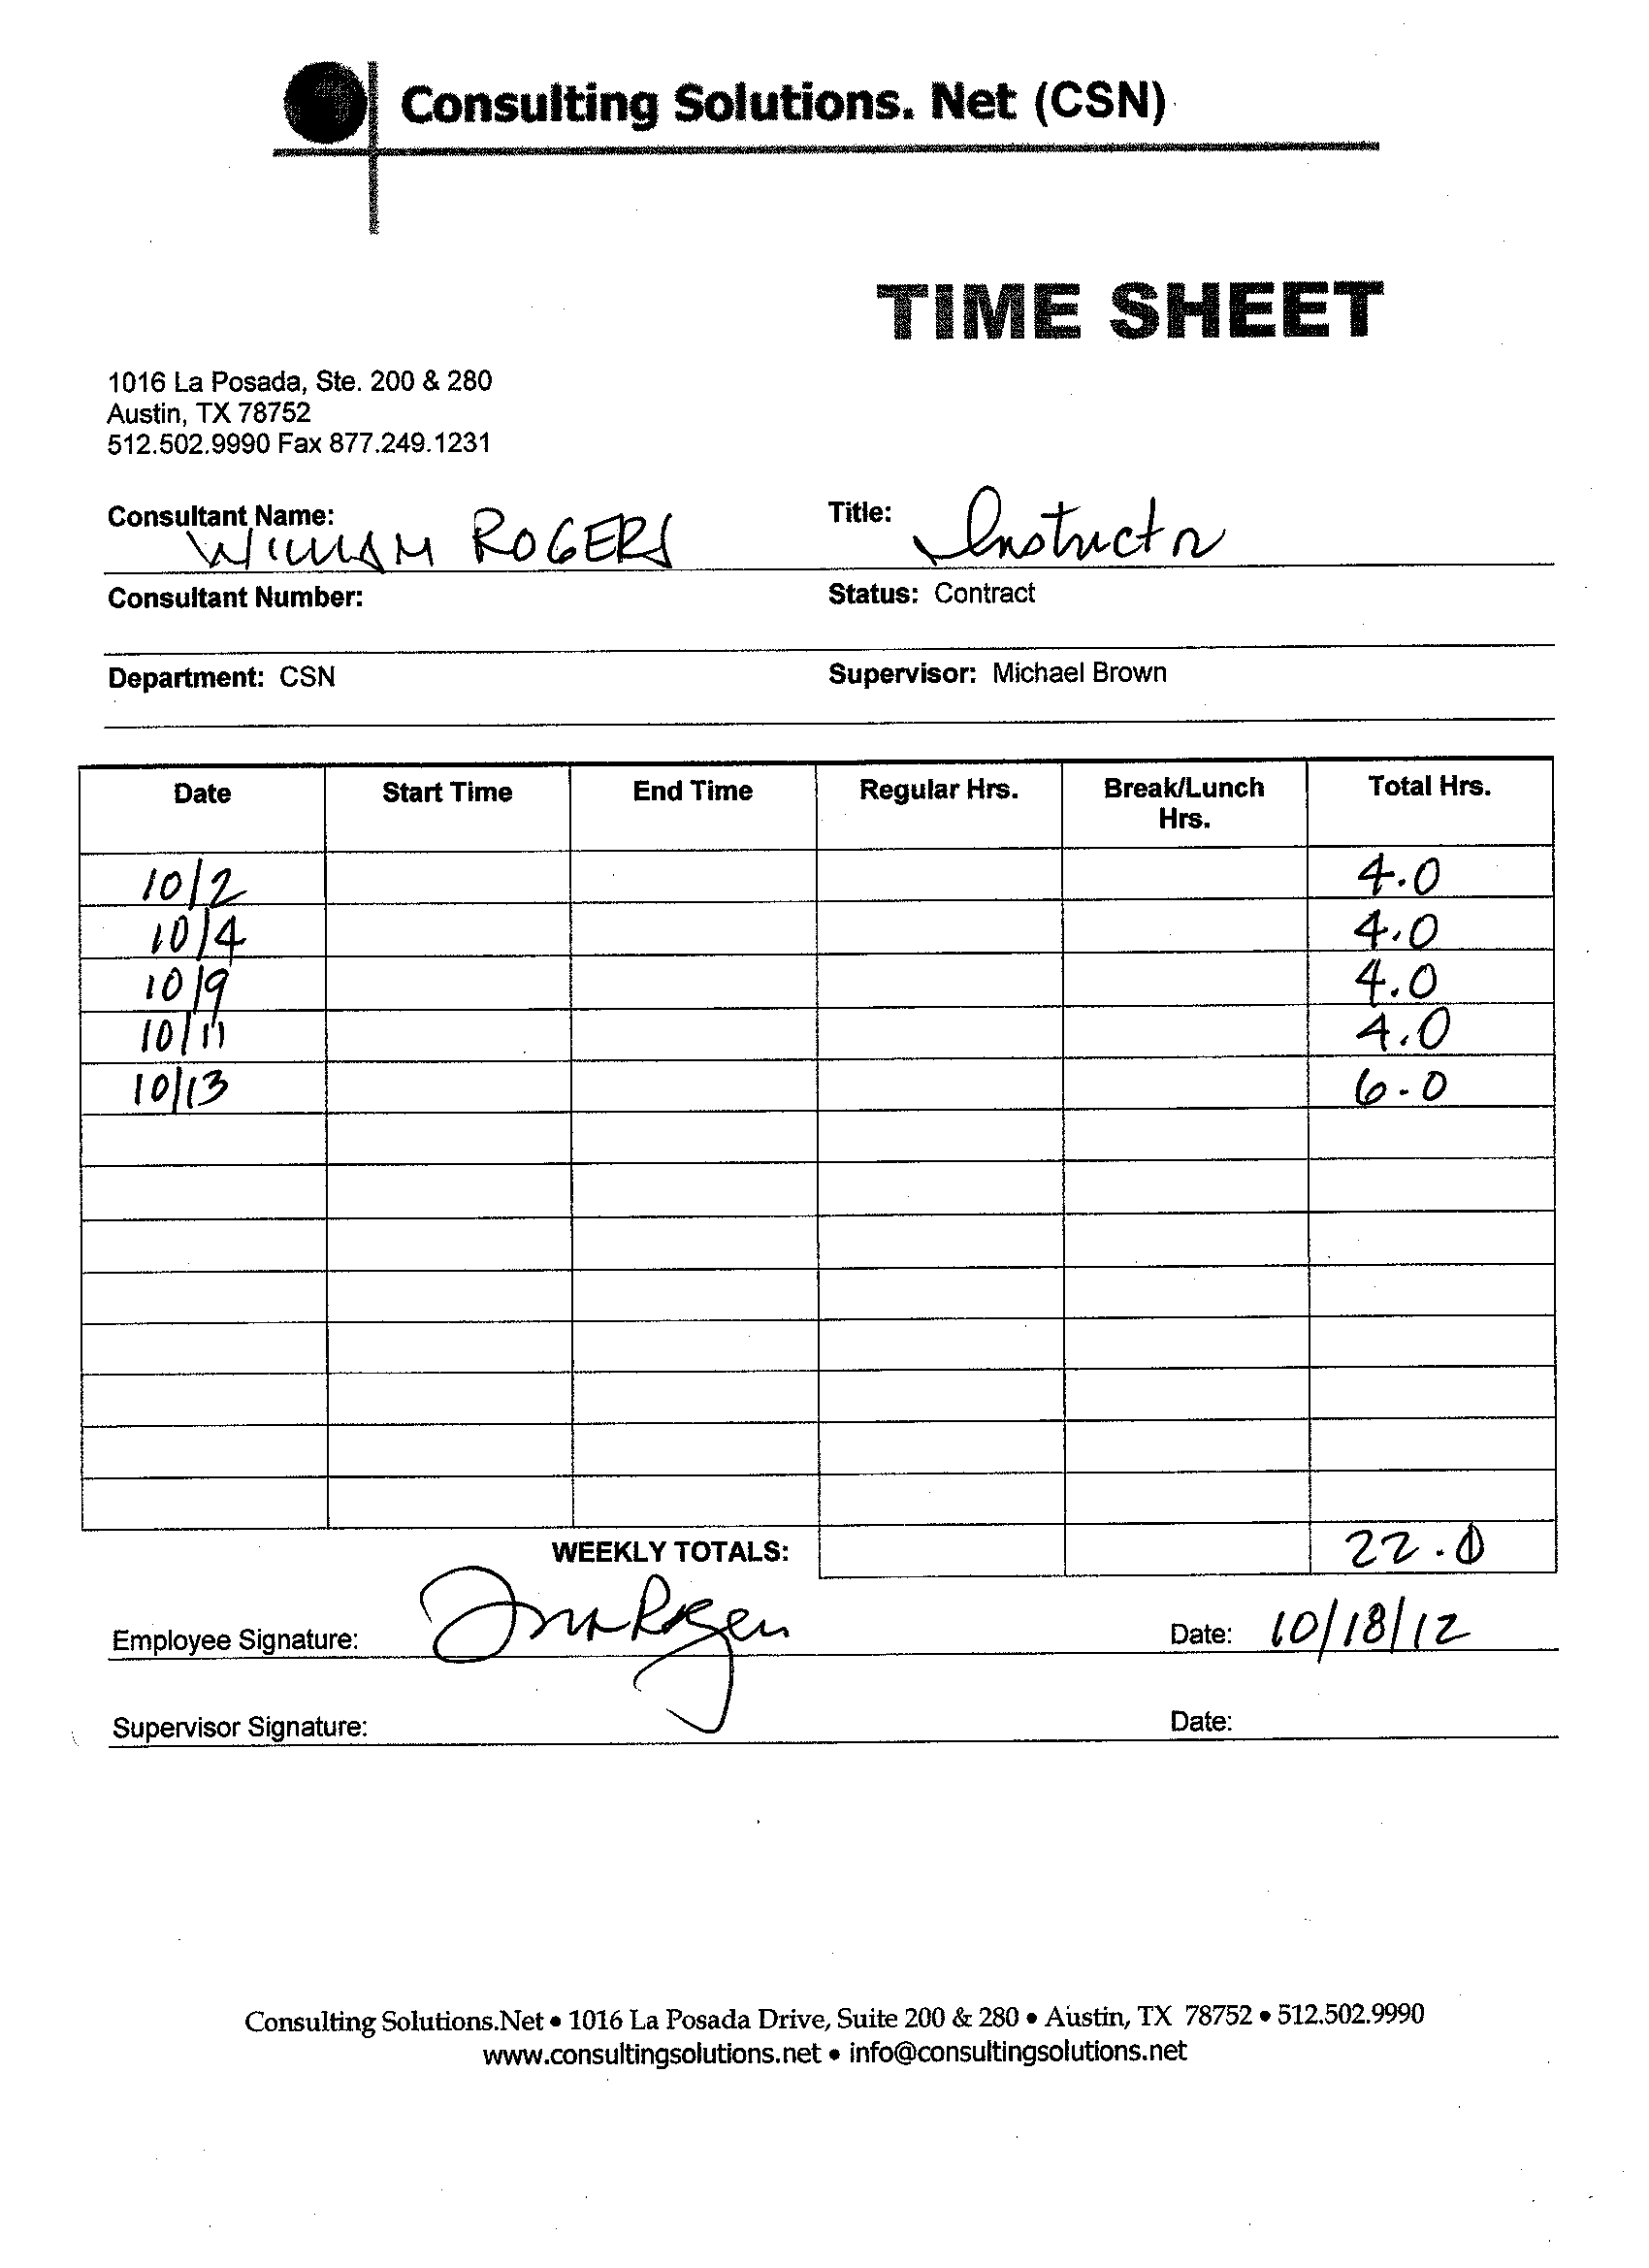 Consulting Solutions. Net (CSN)
TIME SHEET
1016 La Posada, Ste. 200 & 280
Austin, TX 78752
512.502.9990 Fax 877.249.1231
Consultant Name: WILLIAM ROGERS Title: Instructor
Consultant Number: Status: Contract
Department: CSN Supervisor: Michael Brown
Date Start Time End Time Regular Hrs. Break/Lunch Hrs. Total Hrs.
10/2 4.0
10/4 4.0
10/9 4.0
10/11 4.0
10/13 6.0
WEEKLY TOTALS: 22.0
Employee Signature: Date: 10/18/12
Supervisor Signature: Date:
Consulting Solutions.Net • 1016 La Posada Drive, Suite 200 & 280 • Austin, TX 78752 • 512.502.9990
www.consultingsolutions.net • info@consultingsolutions.net